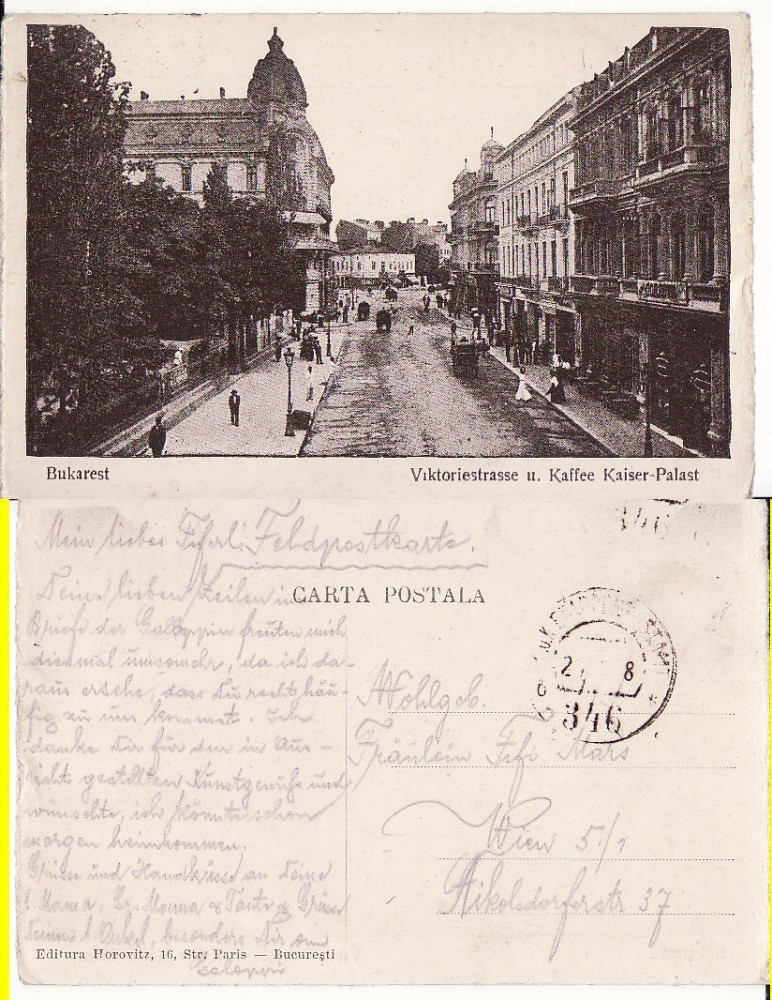 Bukarest
Viktoriestrasse u. Kaffee Kaiser-Palast
346
Mein liebes Fiferl! Feldpostkarte.
CARTA POSTALA
Deine lieben Zeilen im
Briefe der Galoppin freuten mich
diesmal umsomehr, da ich da-
raus ersehe, dass Du recht häu-
fig zu uns kommst. Ich
danke Dir für den in Aus-
sicht gestellten Kunstgenuss und
wünschte, ich könnte schon
morgen heimkommen.
Grüsse und Handküsse an Deine
l. Mama, Gr. Mama & Tante & Grüsse
Deinem l. Onkel, besonders Dir vom
Galoppi
8
346
Wohlgeb.
Fräulein Fifi Mars
Wien 5/1
Nikolsdorferstr 37
Editura Horovitz, 16, Str. Paris — București